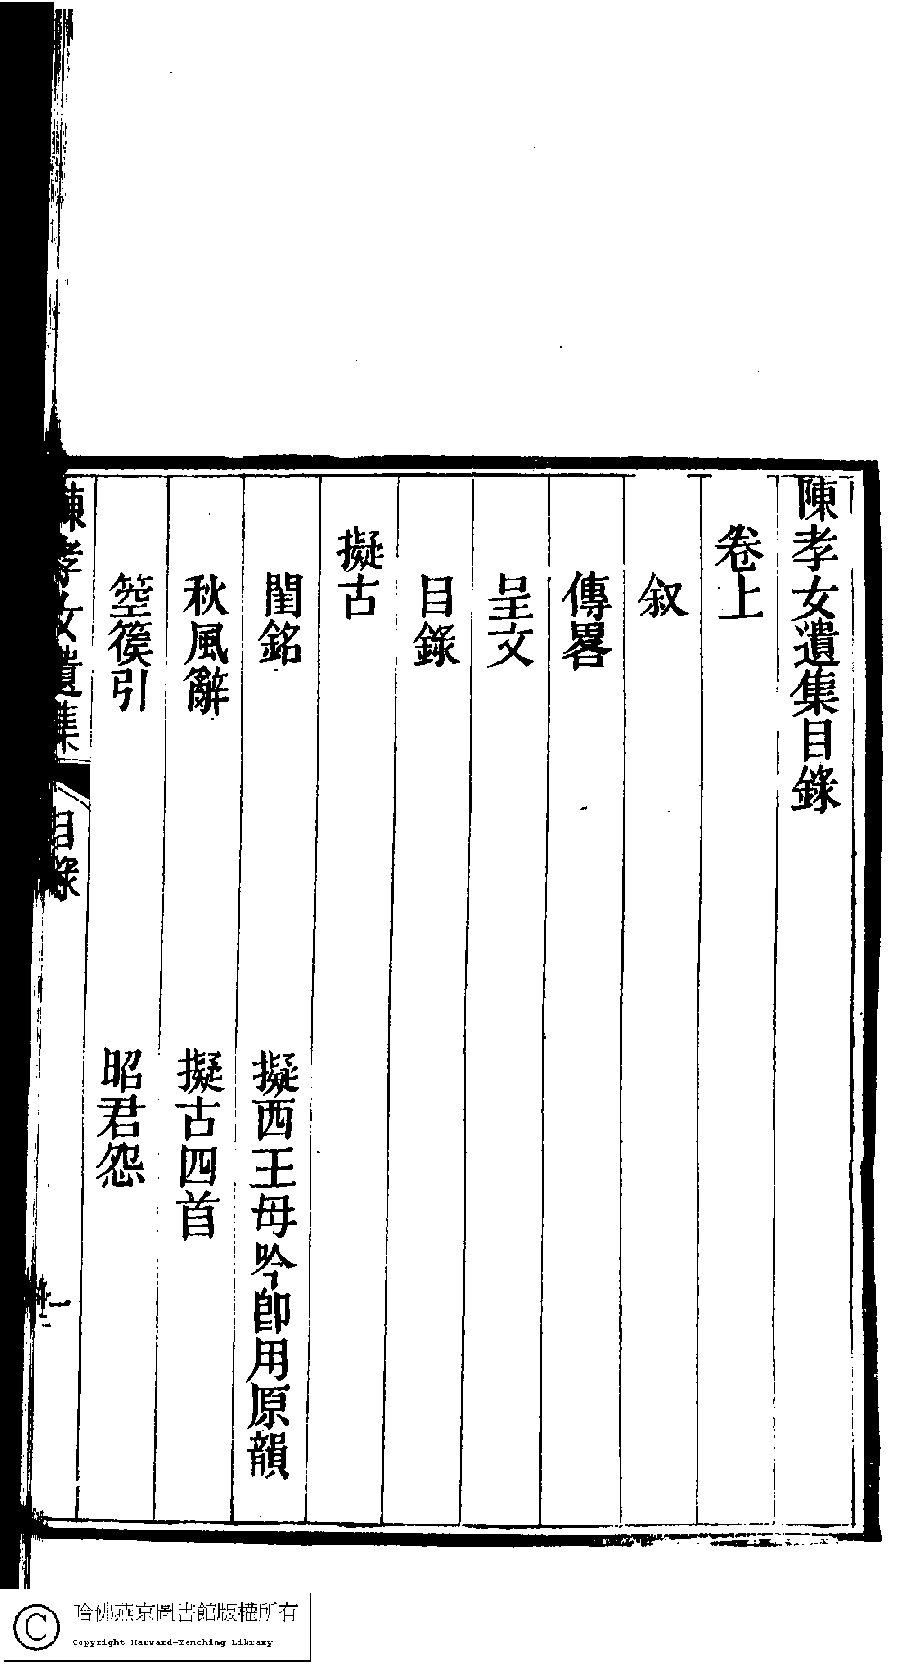 陳孝女遺集目錄
卷上
叙
傳畧
呈文
目錄
擬古
閨銘 擬西王母吟卽用原韻
秋風辭 擬古四首
箜篌引 昭君怨
陳孝女遺集 目錄 一
哈佛燕京圖書館版權所有
Copyright Harvard-Yenching Library